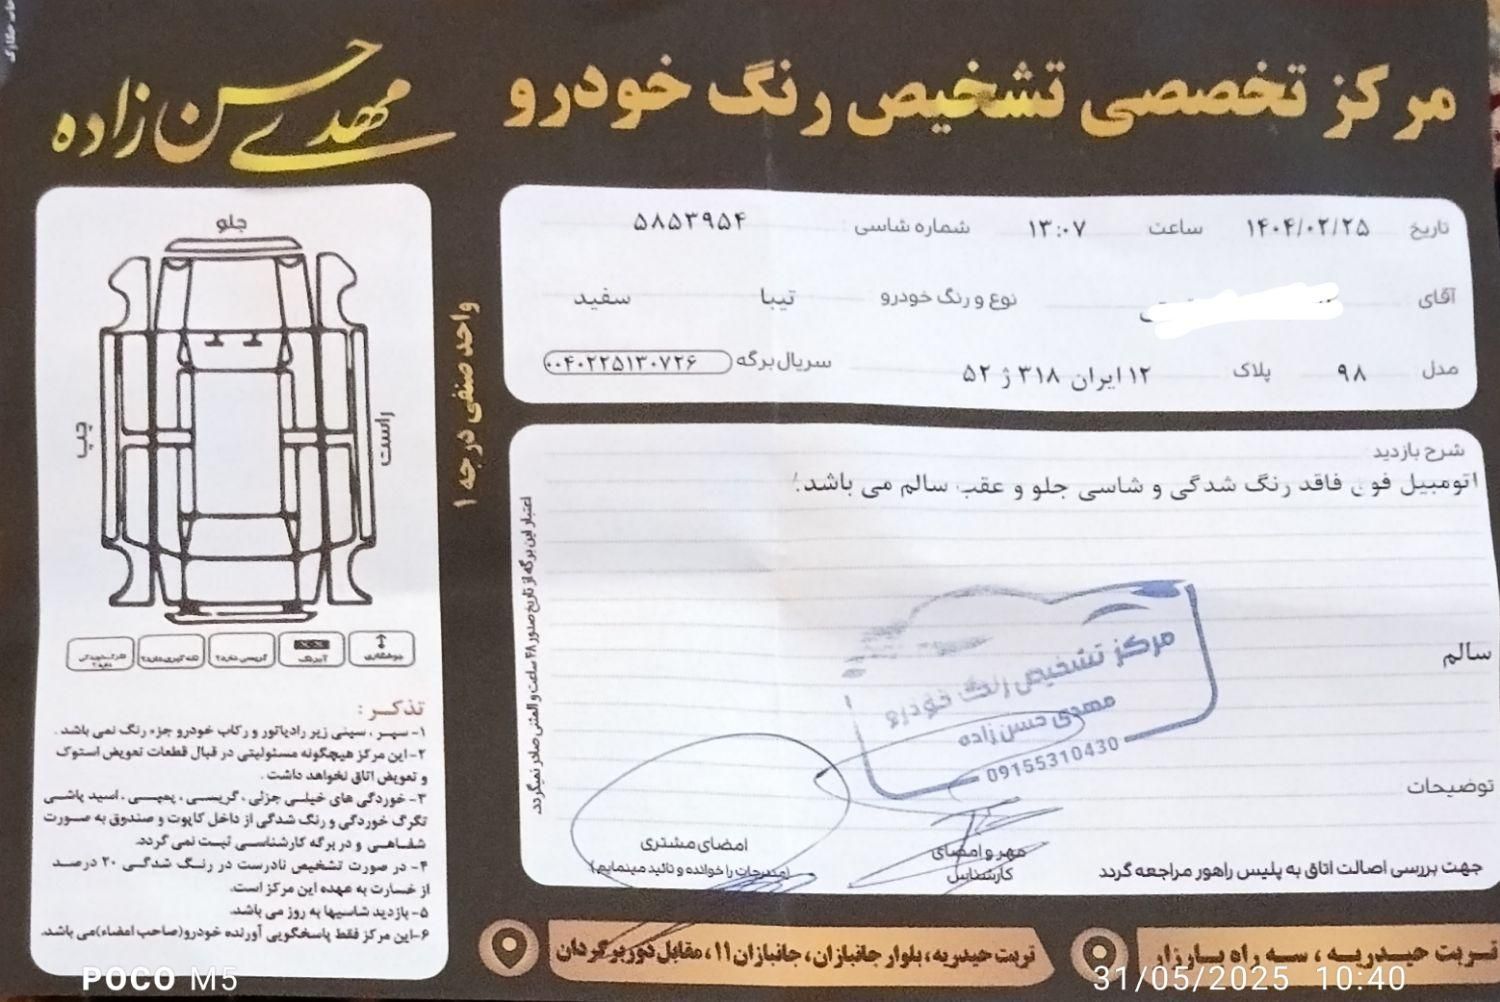 مرکز تخصصی تشخیص رنگ خودرو
مهدی حسن زاده
تاریخ ۱۴۰۴/۰۲/۲۵ ساعت ۱۳:۰۷ شماره شاسی ۵۸۵۳۹۵۴
آقای نوع و رنگ خودرو تیبا سفید
مدل ۹۸ پلاک ۱۲ ایران ۳۱۸ ژ ۵۲ سریال برگه ۰۰۴۰۲۲۵۱۳۰۷۲۶
واحد صنفی درجه ۱
شرح بازدید
اتومبیل فوق فاقد رنگ شدگی و شاسی جلو و عقب سالم می باشد.
سالم
توضیحات
مرکز تشخیص رنگ خودرو
مهدی حسن زاده
09155310430
مهر و امضای
کارشناس
امضای مشتری
(مندرجات را خوانده و تائید مینمایم)
جهت بررسی اصالت اتاق به پلیس راهور مراجعه گردد
اعتبار این برگه از تاریخ صدور ۴۸ ساعت و المثنی صادر نمیگردد.
جلو
چپ
راست
جوشکاری
آبرنگ
گریسی دارد؟
لکه گیری دارد؟
تذکر :
۱- سپر ، سینی زیر رادیاتور و رکاب خودرو جزء رنگ نمی باشد .
۲- این مرکز هیچگونه مسئولیتی در قبال قطعات تعویض استوک
و تعویض اتاق نخواهد داشت .
۳- خوردگی های خیلی جزئی ، گریسی ، پمپی ، اسید پاشی
تگرگ خوردگی و رنگ شدگی از داخل کاپوت و صندوق به صورت
شفاهی و در برگه کارشناسی ثبت نمی گردد.
۴- در صورت تشخیص نادرست در رنگ شدگی ۲۰ درصد
از خسارت به عهده این مرکز است.
۵- بازدید شاسیها به روز می باشد.
۶- این مرکز فقط پاسخگویی آورنده خودرو(صاحب امضاء)می باشد.
تربت حیدریه ، سه راه بارزار
تربت حیدریه، بلوار جانبازان، جانبازان ۱۱، مقابل دوربرگردان
POCO M5
31/05/2025 10:40